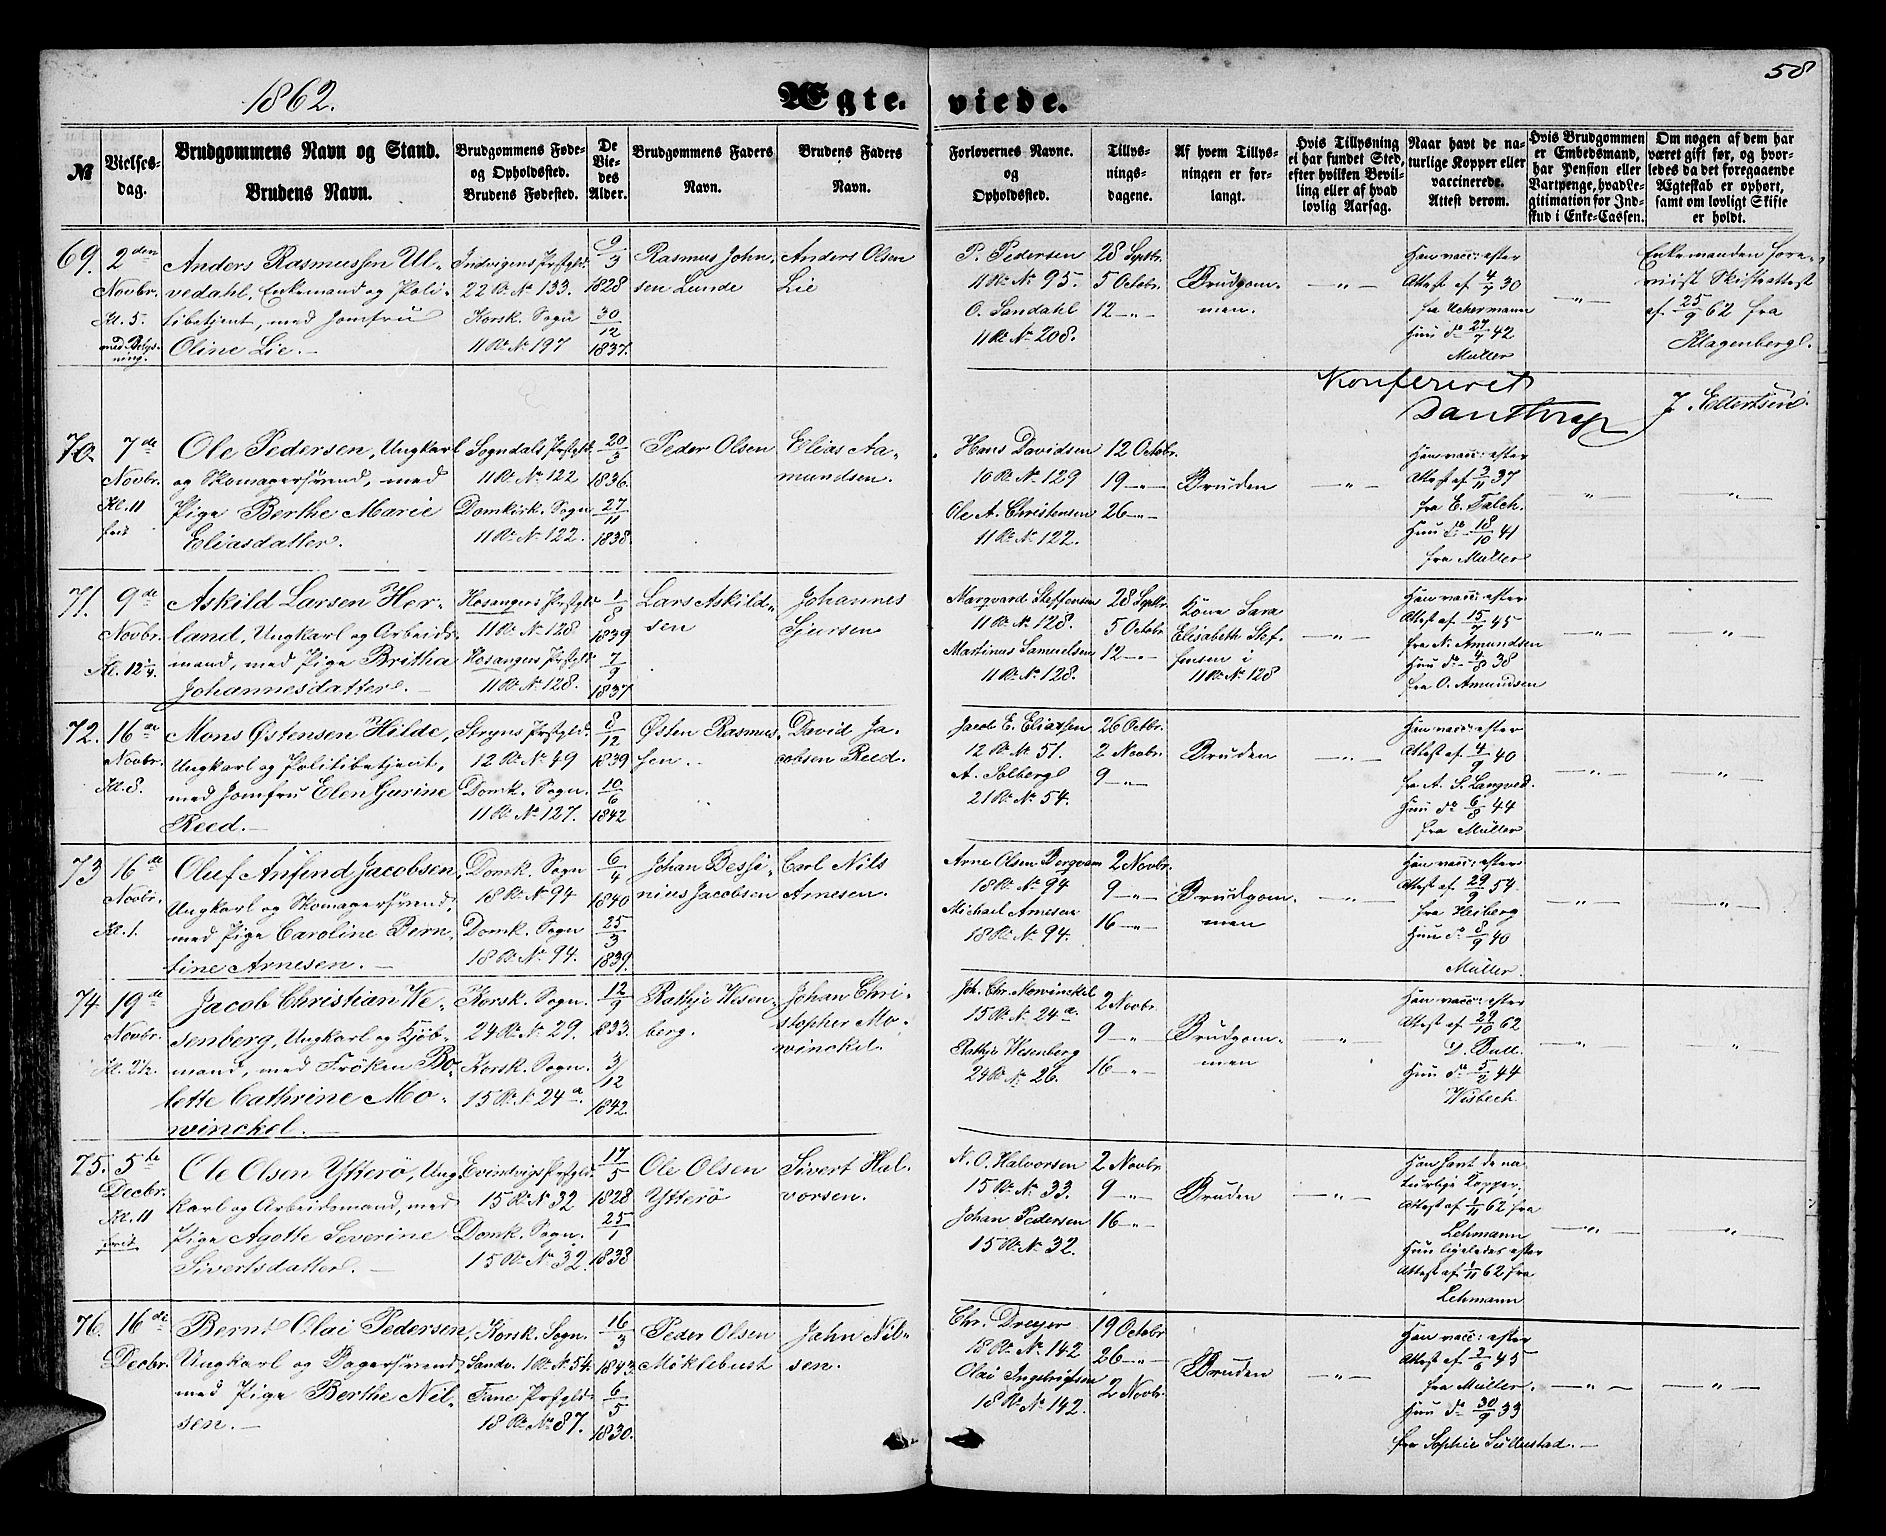 58
1862.
Ægte- viede.
№
Vielses-
dag.
Brudgommens Navn og Stand.
Brudens Navn.
Brudgommens Føde-
og Opholdssted.
Brudens Fødested.
De
Vie-
des
Alder.
Brudgommens Faders
Navn.
Brudens Faders
Navn.
Forlovernes Navne.
og
Opholdssted.
Tillys-
nings-
dagene.
Af hvem Tillys-
ningen er for-
langt.
Hvis Tillysning
ei har fundet Sted,
efter hvilken Bevil-
ling eller af hvad
lovlig Aarsag.
Naar havt de na-
turlige Kopper eller
vaccinerede.
Attest derom.
Hvis Brudgommen
er Embedsmand,
har Pension eller
Vartpenge, hvad Le-
gitimation for Ind-
skud i Enke-Cassen.
Om nogen af dem har
været gift før, og hvor-
ledes da det foregaaende
Ægteskab er ophørt,
samt om lovligt Skifte
er holdt.
69.
2den
Novbr.
Kl. 5.
med Belys-
ning.
Anders Rasmussen Ul-
vedahl, Enkemand og Poli-
tibetjent, med Jomfru
Oline Lie.
Indvigens Prstgjld.
22 R. № 133.
Korsk. Sogn
11 R. № 197
9/3
1828
30/12
1837.
Rasmus John-
sen Lunde
Anders Olsen
Lie
P. Pedersen
11 R. № 95.
O. Sandahl
11 R. № 208.
28 Septbr.
5 Octobr.
12 —„—
Brudgom-
men.
—„—
Han vacc: efter
Attest af 4/7 30
fra Uchermann
Hun do 27/7 42
Müller
—„—
Enkemanden fore-
viist Skifteattest
af 25/9 62 fra
Klagenberg.
Konfereret
J. Ellertsen.
70.
7de
Novbr.
Kl. 11
frit
Ole Pedersen, Ungkarl
og Skomagersvend, med
Pige Berthe Marie
Eliasdatter.
Sogndals Prstgjld.
11 R. № 122
Domkirk. Sogn
11 R. № 122.
20/3
1836.
27/11
1838.
Peder Olsen
Elias Aa-
mundsen.
Hans Davidsen
10 R. № 129
Ole A. Christensen
11 R. № 122.
12 Octobr.
19 —„—
26 —„—
Bruden
—„—
Han vacc: efter
Attest af 3/11 37
fra E. Falch.
Hun do 18/10 41
fra Müller
—„—
—„—
71.
9de
Novbr.
Kl. 12¼
Askild Larsen Her-
land, Ungkarl og Arbeids-
mand, med Pige Britha
Johannesdatter.
Hosangers Prstgjld
11 R. № 128
Hosangers Prstgjld
11 R. № 128.
1/8
1839
7/9
1837
Lars Askild-
sen
Johannes
Sjursen
Marqvard Steffensen
11 R. № 128.
Martinus Samuelsen
11 R. № 128.
28 Septbr.
5 Octobr.
12 —„—
Kone Sara
Elisabeth Stef-
fensen i
11 R. № 128
—„—
Han vacc: efter
Attest af 15/7 45
fra N. Amundsen
Hun do 4/8 38
fra O. Amundsen
—„—
—„—
72.
16de
Novbr.
Kl. 8.
Mons Østensen Hilde,
Ungkarl og Politibetjent,
med Jomfru Elen Gurine
Reed.
Stryns Prstgjld.
12 R. № 49
Domk. Sogn.
11 R. № 127.
8/12
1839
10/6
1842
Østen Rasmus-
sen.
David Ja-
cobsen Reed.
Jacob E. Eliassen
12 R. № 51.
A. Solberg
21 R. № 54.
26 Octbr.
2 Novbr.
9 —„—
Bruden
—„—
Han vacc: efter
Attest af 4/9 40
fra A. S. Langved.
Hun do 6/8 44
fra Müller
—„—
—„—
73
16de
Novbr.
Kl. 1.
Oluf Anfind Jacobsen,
Ungkarl og Skomagersvend,
med Pige Caroline Bern-
tine Arnesen.
Domk. Sogn
18 R. № 94
Domk. Sogn
18 R. № 94.
6/4
1840
25/3
1839.
Johan Bessi-
nius Jacobsen
Carl Nils
Arnesen.
Arne Olsen Bergvam
18 R. № 94
Michael Arnesen
18 R. № 94.
2 Novbr.
9 —„—
16 —„—
Brudgom-
men
—„—
Han vacc: efter
Attest af 29/9 54
fra Heiberg
Hun do 8/9 40
Müller.
—„—
—„—
74
19de
Novbr.
Kl. 2½.
Jacob Christian We-
senberg, Ungkarl og Kjøb-
mand, med Frøken Bo-
lette Cathrine Mo-
winckel.
Korsk. Sogn.
24 R. № 29.
Korsk. Sogn.
15 R. № 24a.
12/9
1833.
3/12
1842.
Rathje Wesen-
berg.
Johan Chri-
stopher Mo-
winckel.
Joh. Chr. Mowinckel
15 R. № 24a.
Rathje Wesenberg
24 R. № 26.
2 Novbr.
9 —„—
16 —„—
Brudgom-
men
—„—
Han vacc: efter
Attest af 29/10 62
D. Bull.
Hun do 5/2 44
Wisbech.
—„—
—„—
75.
5te
Decbr.
Kl. 11
frit
Ole Olsen Ytterø, Ung-
karl og Arbeidsmand, med
Pige Agotte Severine
Sivertsdatter.
Evindvigs Prstgjld.
15 R. № 32
Domk. Sogn.
15 R. № 32.
17/5
1828
25/1
1838
Ole Olsen
Ytterø
Sivert Hal-
vorsen.
N. O. Halvorsen
15 R. № 33.
Johan Pedersen
15 R. № 32.
2 Novbr.
9 —„—
16 —„—
Bruden
—„—
Han havt de na-
turlige Kopper,
Attest af 1/11 62 fra
Lehmann
Hun ligeledes efter
Attest af 1/11 62 fra
Lehmann
—„—
—„—
76.
16de
Decbr.
Bernt Olai Pedersen,
Ungkarl og Bagersvend,
med Pige Berthe Nil-
sen.
Korsk. Sogn.
Sandv. 1 R. № 54.
Fane Prstgjld.
18 R. № 87.
16/3
1843
6/5
1830.
Peder Olsen
Miklebust
Jahn Nil-
sen.
Chr. Dreyer
18 R. № 142
Olai Ingebrigtsen
18 R. № 142.
19 Octobr
26 —„—
2 Novbr.
Bruden
—„—
Han vacc: efter
Attest af 2/6 45
fra Müller.
Hun do 30/9 33
fra Sophie Sullustad.
—„—
—„—